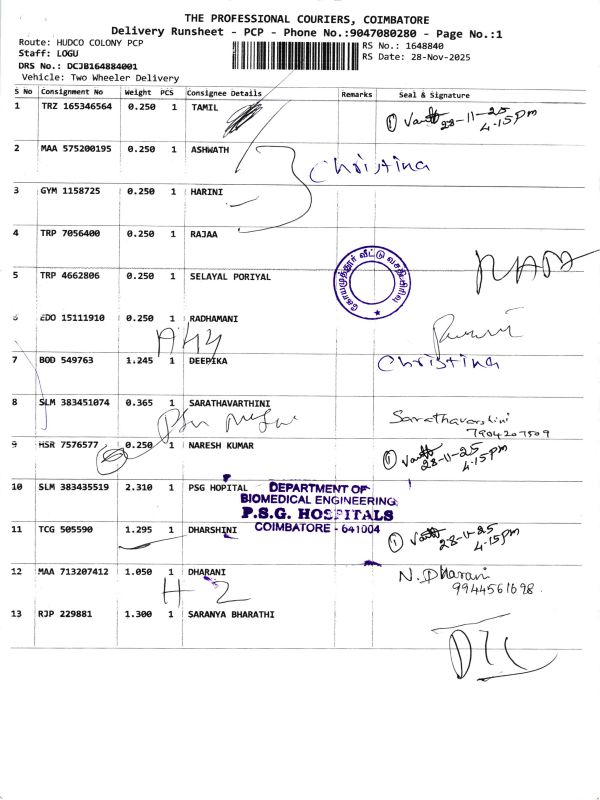 THE PROFESSIONAL COURIERS, COIMBATORE
Delivery Runsheet - PCP - Phone No.:9047080280 - Page No.:1
Route: HUDCO COLONY PCP
RS No.: 1648840
Staff: LOGU
RS Date: 28-Nov-2025
DRS No.: DCJB164884001
Vehicle: Two Wheeler Delivery
S No Consignment No Weight PCS Consignee Details Remarks Seal & Signature
1 TRZ 165346564 0.250 1 TAMIL
28-11-25
4.15pm
2 MAA 575200195 0.250 1 ASHWATH
Christina
3 GYM 1158725 0.250 1 HARINI
4 TRP 7056400 0.250 1 RAJAA
5 TRP 4662806 0.250 1 SELAYAL PORIYAL
கோயமுத்தூர் வீட்டு வசதிப்பிரிவு
6 EDO 15111910 0.250 1 RADHAMANI
7 BOD 549763 1.245 1 DEEPIKA Christina
8 SLM 383451074 0.365 1 SARATHAVARTHINI Sarathavarshini
7904207509
9 HSR 7576577 0.250 1 NARESH KUMAR
28-11-25
4.15pm
10 SLM 383435519 2.310 1 PSG HOPITAL
DEPARTMENT OF
BIOMEDICAL ENGINEERING
P.S.G. HOSPITALS
COIMBATORE - 641004
11 TCG 505590 1.295 1 DHARSHINI
28-11-25
4.15pm
12 MAA 713207412 1.050 1 DHARANI N. Dharani
9944561698
H 2
13 RJP 229881 1.300 1 SARANYA BHARATHI